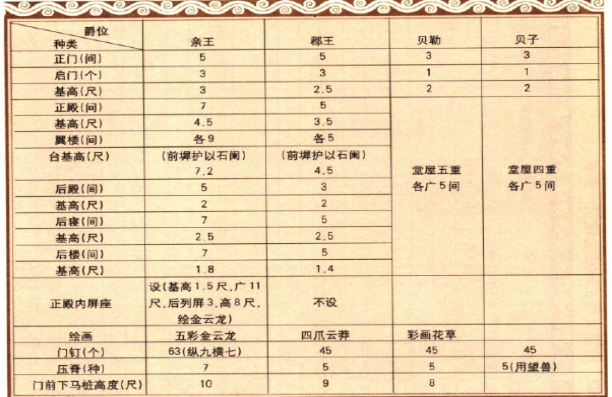 爵位
种类 亲王 郡王 贝勒 贝子
正门(间) 5 5 3 3
启门(个) 3 3 1 1
基高(尺) 3 2.5 2 2
正殿(间) 7 5
基高(尺) 4.5 3.5
翼楼(间) 各9 各5
台基高(尺) (前墀护以石阑) (前墀护以石阑)
7.2 4.5
堂屋五重 堂屋四重
各广5间 各广5间
后殿(间) 5 3
基高(尺) 2 2
后寝(间) 7 5
基高(尺) 2.5 2.5
后楼(间) 7 5
基高(尺) 1.8 1.4
设(基高1.5尺,广11
正殿内屏座 尺,后列屏3,高8尺, 不设
绘金云龙)
绘画 五彩金云龙 四爪云蟒 彩画花草
门钉(个) 63(纵九横七) 45 45 45
压脊(种) 7 5 5 5(用望兽)
门前下马桩高度(尺) 10 9 8